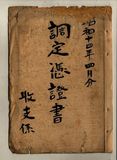 昭和十四年四月分
調定憑證書
收支係